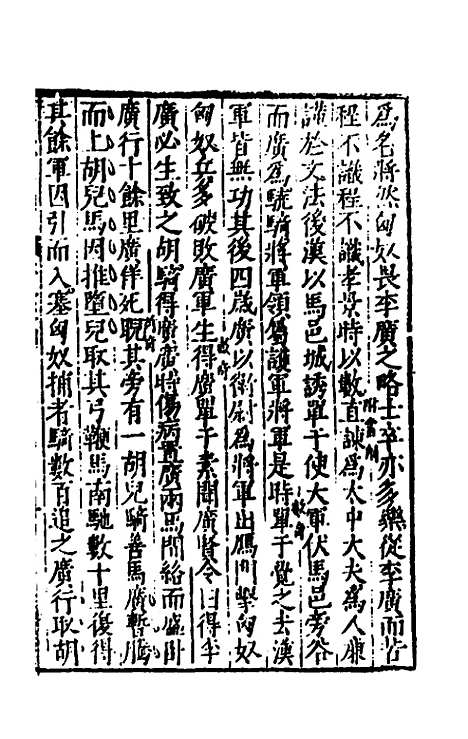 為名將然匈奴畏李廣之略士卒亦多樂從李廣而苦
程不識程不識孝景時以數直諫為太中大夫為人廉
謹於文法後漢以馬邑城誘單于使大軍伏馬邑旁谷
而廣為驍騎將軍領屬護軍將軍是時單于覺之去漢
軍皆無功其後四歲廣以衛尉為將軍出鴈門擊匈奴
匈奴兵多破敗廣軍生得廣單于素聞廣賢令曰得李
廣必生致之胡騎得廣廣時傷病置廣兩馬間絡而盛臥
廣行十餘里廣佯死睨其旁有一胡兒騎善馬廣暫騰
而上胡兒馬因推墮兒取其弓鞭馬南馳數十里復得
其餘軍因引而入塞匈奴捕者騎數百追之廣行取胡